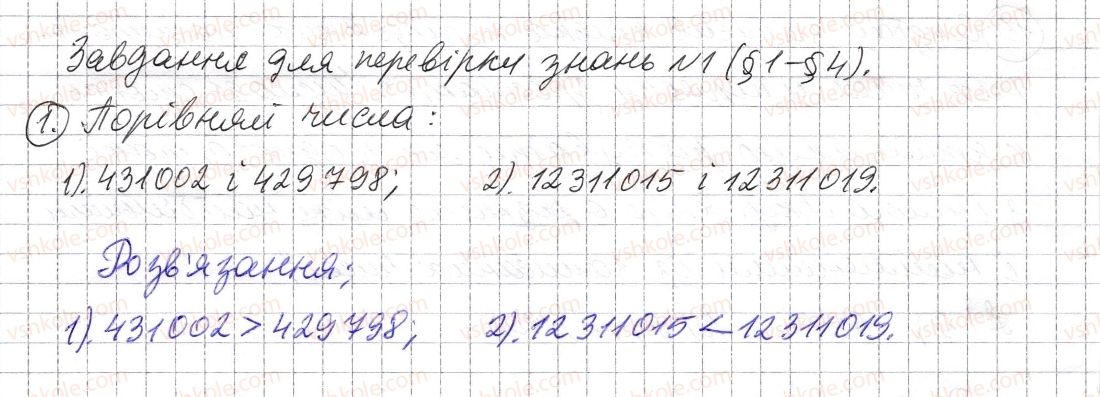 Завдання для перевірки знань №1 (§1-§4).
1. Порівняй числа:
1). 431002 і 429798; 2). 12311015 і 12311019.
Розв'язання;
1). 431002 > 429798; 2). 12311015 < 12311019.